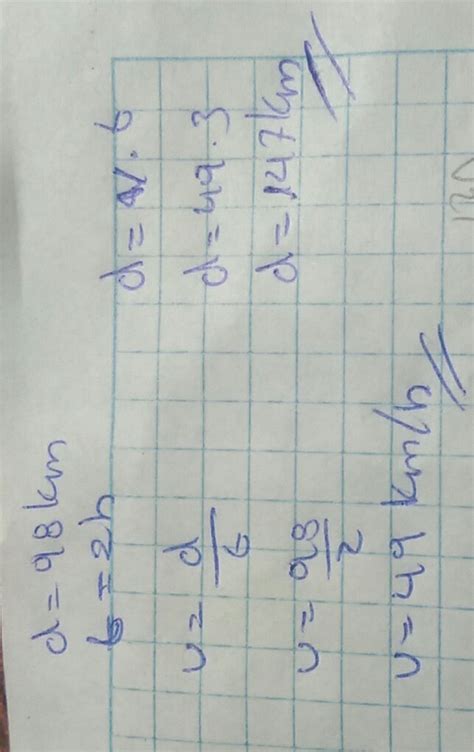 d = 98 km
t = 2h
v = d/t
v = 98/2
v = 49 km/h
d = v . t
d = 49 . 3
d = 147 km